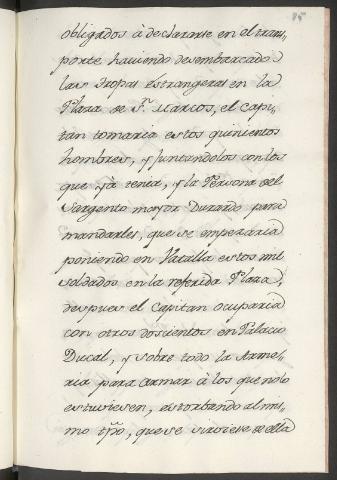 85
obligados à declararse en el trans,
porte, haviendo desembarcado
las tropas estrangeras en la
Plaza de Sⁿ. Marcos, el Capi,
tan tomaria estos quinientos
hombres, y juntandolos con los
que yà tenia, y la Persona del
Sargento mayor Durando para
mandarles, que se empezaria
poniendo en Vatalla estos mil
soldados en la referida Plaza,
despues el Capitan ocuparia
con otros doscientos en Palacio
Ducal, y sobre todo la Arme,
ria para armar à los que nolo
estuviesen, estorbando al mis,
mo tpõ, que se sirviese de ella